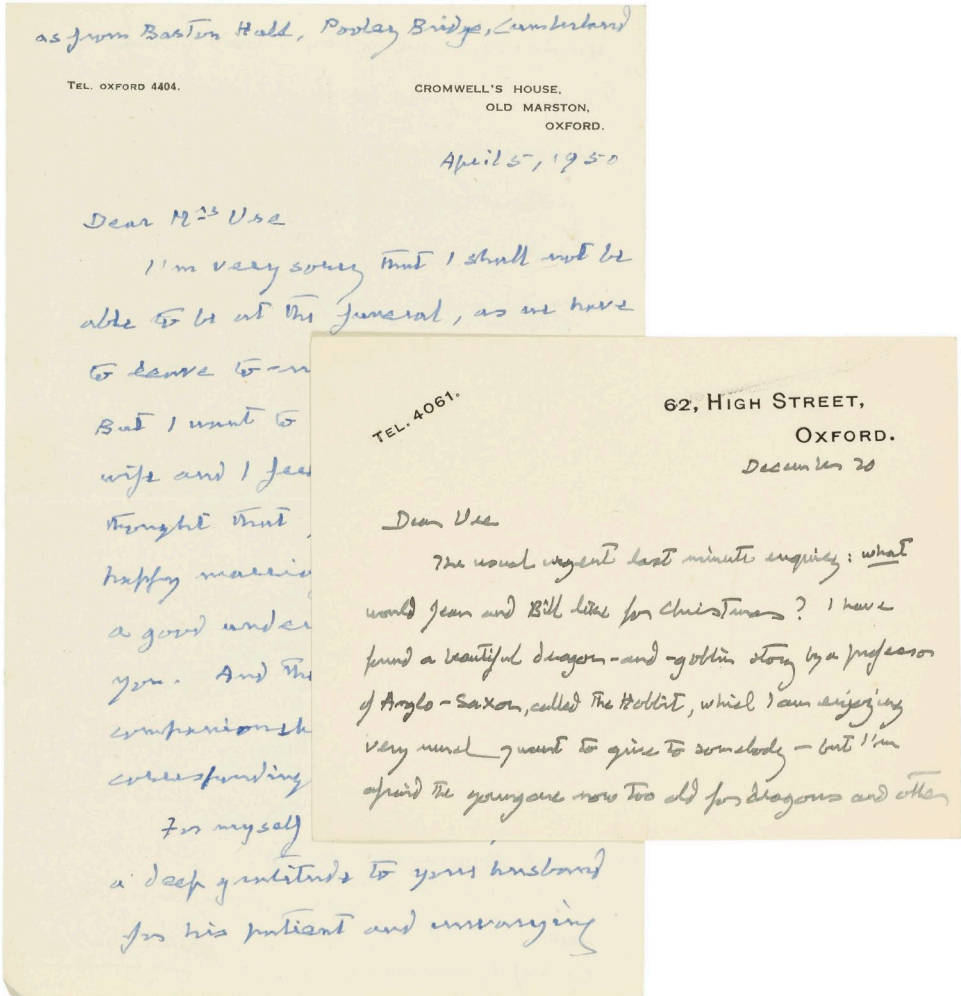 as from Barton Hall, Pooley Bridge, Cumberland
TEL. OXFORD 4404.
CROMWELL'S HOUSE,
OLD MARSTON,
OXFORD.
April 5, 1950
Dear Mrs Use
I'm very sorry that I shall not be
able to be at the funeral, as we have
to leave to-m
But I want to
wife and I feel
thought that
happy marria
a good under
you. And the
companionsh
corresponding
For myself
a deep gratitude to your husband
for his patient and unvarying
TEL. 4061.
62, HIGH STREET,
OXFORD.
December 20
Dear Use
The usual urgent last minute enquiry: what
would Jean and Bill like for Christmas? I have
found a beautiful dragon-and-goblin story by a professor
of Anglo-Saxon, called The Hobbit, which I am enjoying
very much & want to give to somebody – but I'm
afraid the young are now too old for dragons and other